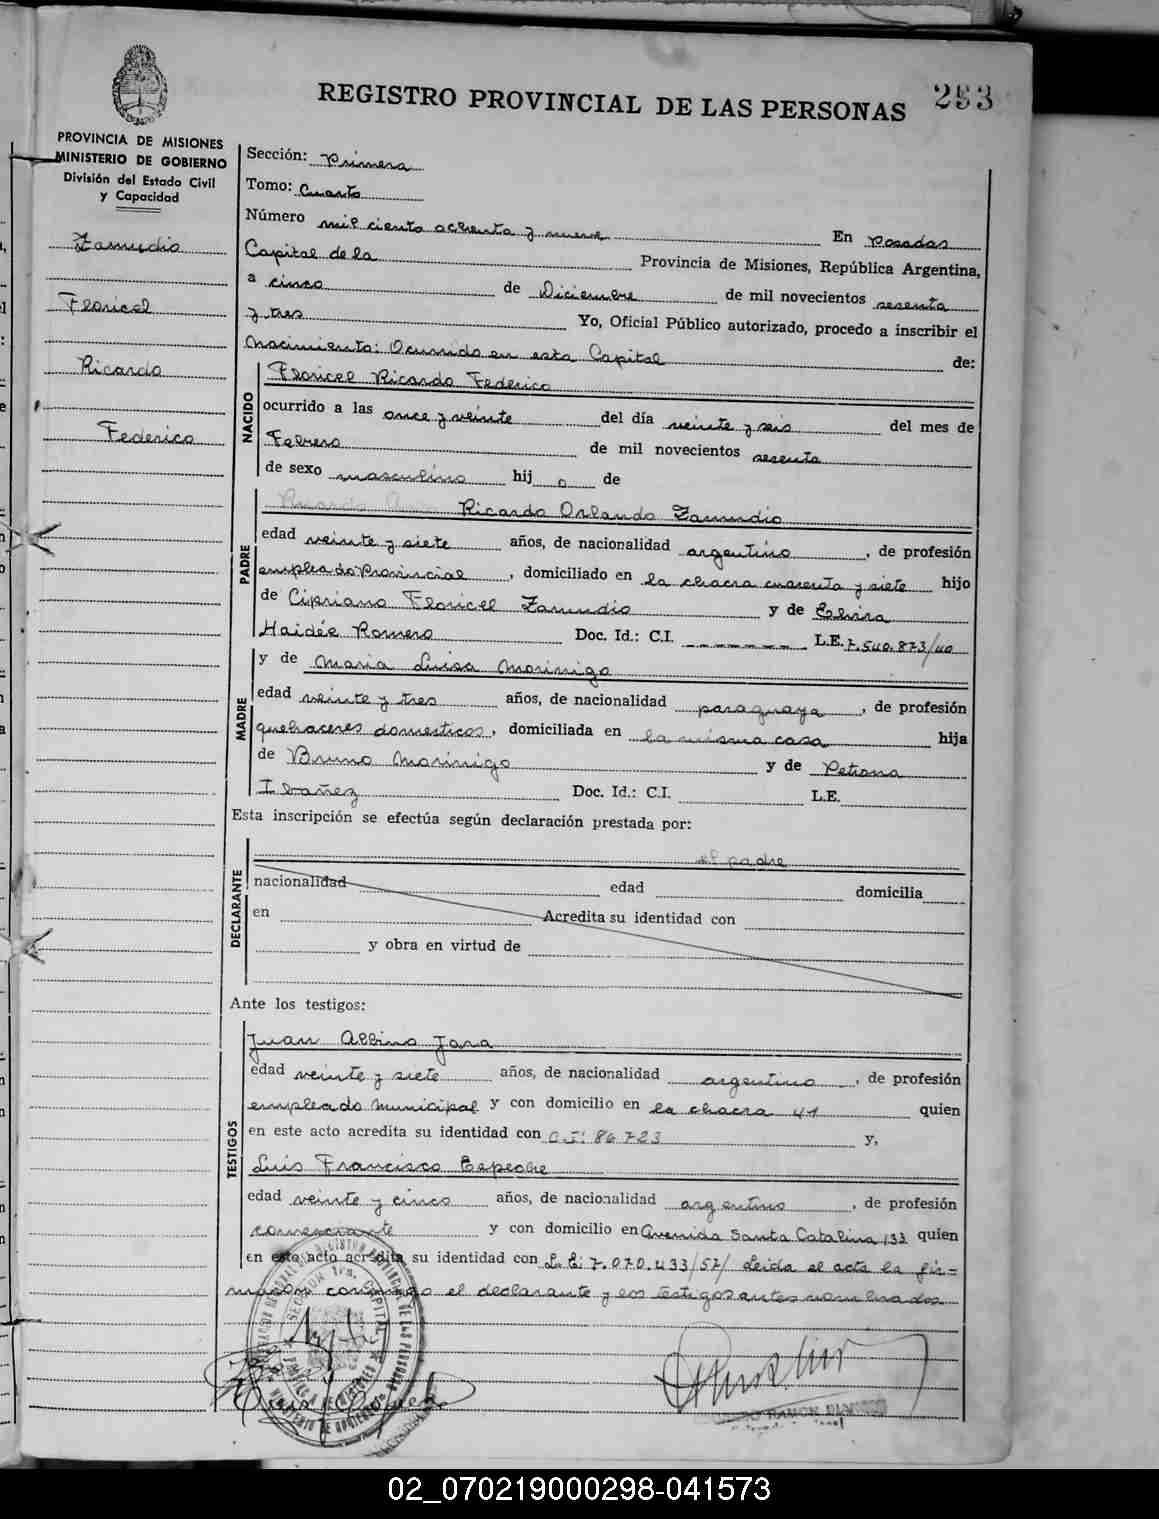 REGISTRO PROVINCIAL DE LAS PERSONAS 253
PROVINCIA DE MISIONES
MINISTERIO DE GOBIERNO
División del Estado Civil
y Capacidad
Zamudio
Floricel
Ricardo
Federico
Sección: Primera
Tomo: Cuarto
Número mil ciento ochenta y nueve En Posadas
Capital de la Provincia de Misiones, República Argentina,
a cinco de Diciembre de mil novecientos sesenta
y tres Yo, Oficial Público autorizado, procedo a inscribir el
Nacimiento: Ocurrido en esta Capital de:
NACIDO
Floricel Ricardo Federico
ocurrido a las once y veinte del día veinte y seis del mes de
Febrero de mil novecientos sesenta
de sexo masculino hij o de
PADRE
Ricardo Orlando Zamudio
edad veinte y siete años, de nacionalidad argentino, de profesión
empleado Provincial, domiciliado en la chacra cuarenta y siete hijo
de Cipriano Floricel Zamudio y de Elvira
Haidée Romero Doc. Id.: C.I. L.E. 7.540.873/40
MADRE
y de Maria Luisa Morinigo
edad veinte y tres años, de nacionalidad paraguaya, de profesión
quehaceres domesticos, domiciliada en la misma casa hija
de Bruno Morinigo y de Petrona
Ibañez Doc. Id.: C.I. L.E.
Esta inscripción se efectúa según declaración prestada por:
DECLARANTE
el padre
nacionalidad edad domicilia
en Acredita su identidad con
y obra en virtud de
Ante los testigos:
TESTIGOS
Juan Albino Jara
edad veinte y siete años, de nacionalidad argentino, de profesión
empleado municipal y con domicilio en la chacra 41 quien
en este acto acredita su identidad con C.I: 86723 y,
Luis Francisco Espeche
edad veinte y cinco años, de nacionalidad argentino, de profesión
comerciante y con domicilio en Avenida Santa Catalina 133 quien
en este acto acredita su identidad con L.E: 7.070.433/57/ Leida el acta la fir=
maron conmigo el declarante y los testigos antes nombrados
02_070219000298-041573